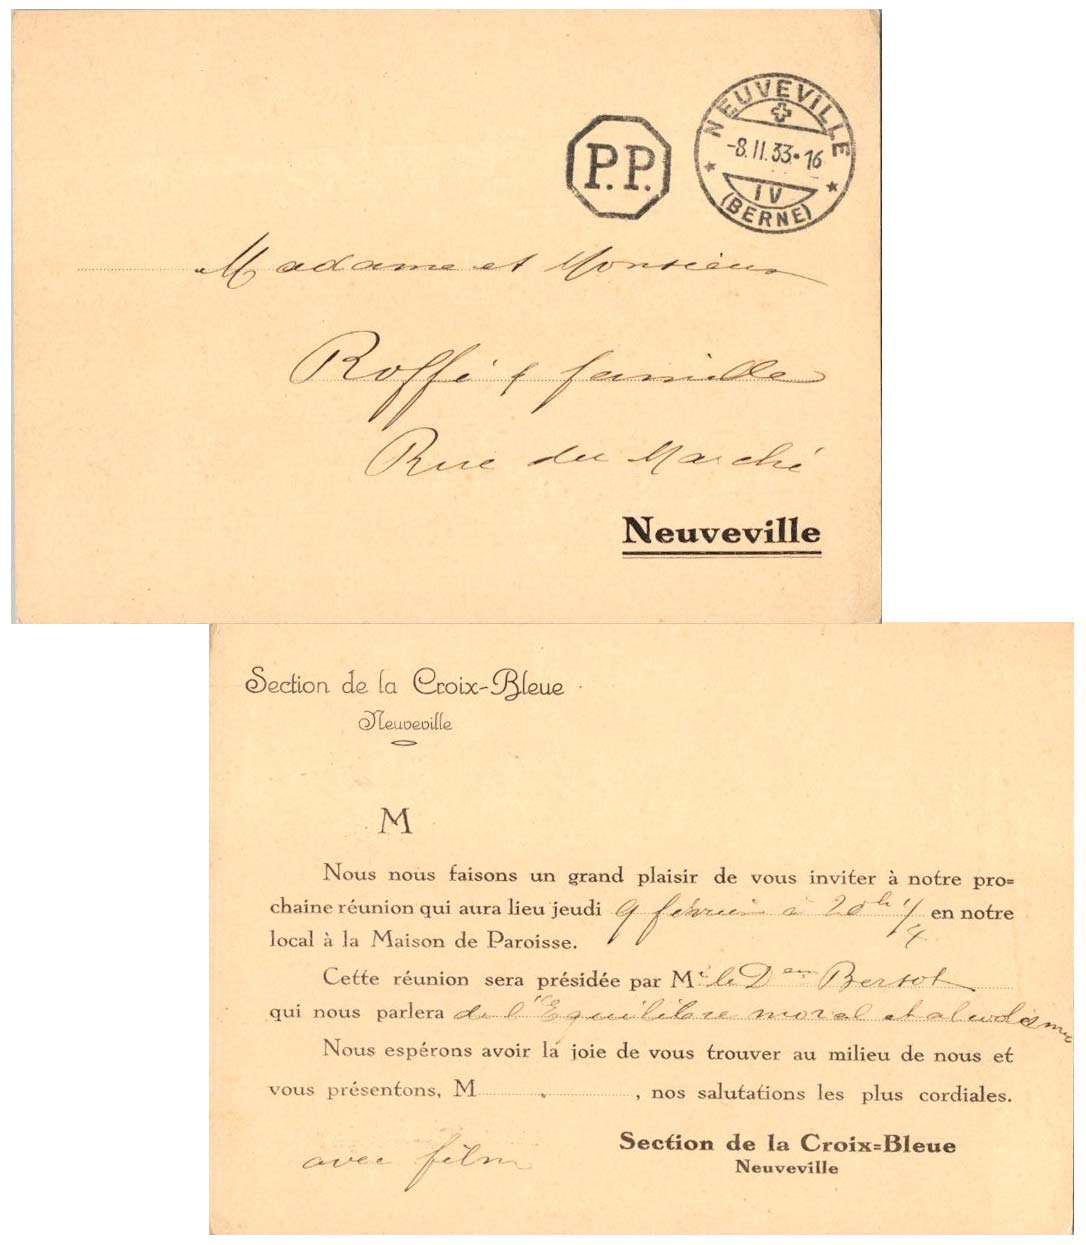 NEUVEVILLE
P.P.
-8.II.33.-16
IV
(BERNE)
Madame et Monsieur
Roffé & famille
Rue du Marché
Neuveville
Section de la Croix-Bleue
Neuveville
M
Nous nous faisons un grand plaisir de vous inviter à notre pro=
chaine réunion qui aura lieu jeudi 9 février à 20 h 1/4 en notre
local à la Maison de Paroisse.
Cette réunion sera présidée par Mr le D Bersot
qui nous parlera de l'Equilibre moral et alcoolisme
Nous espérons avoir la joie de vous trouver au milieu de nous et
vous présentons, M , nos salutations les plus cordiales.
avec film
Section de la Croix=Bleue
Neuveville